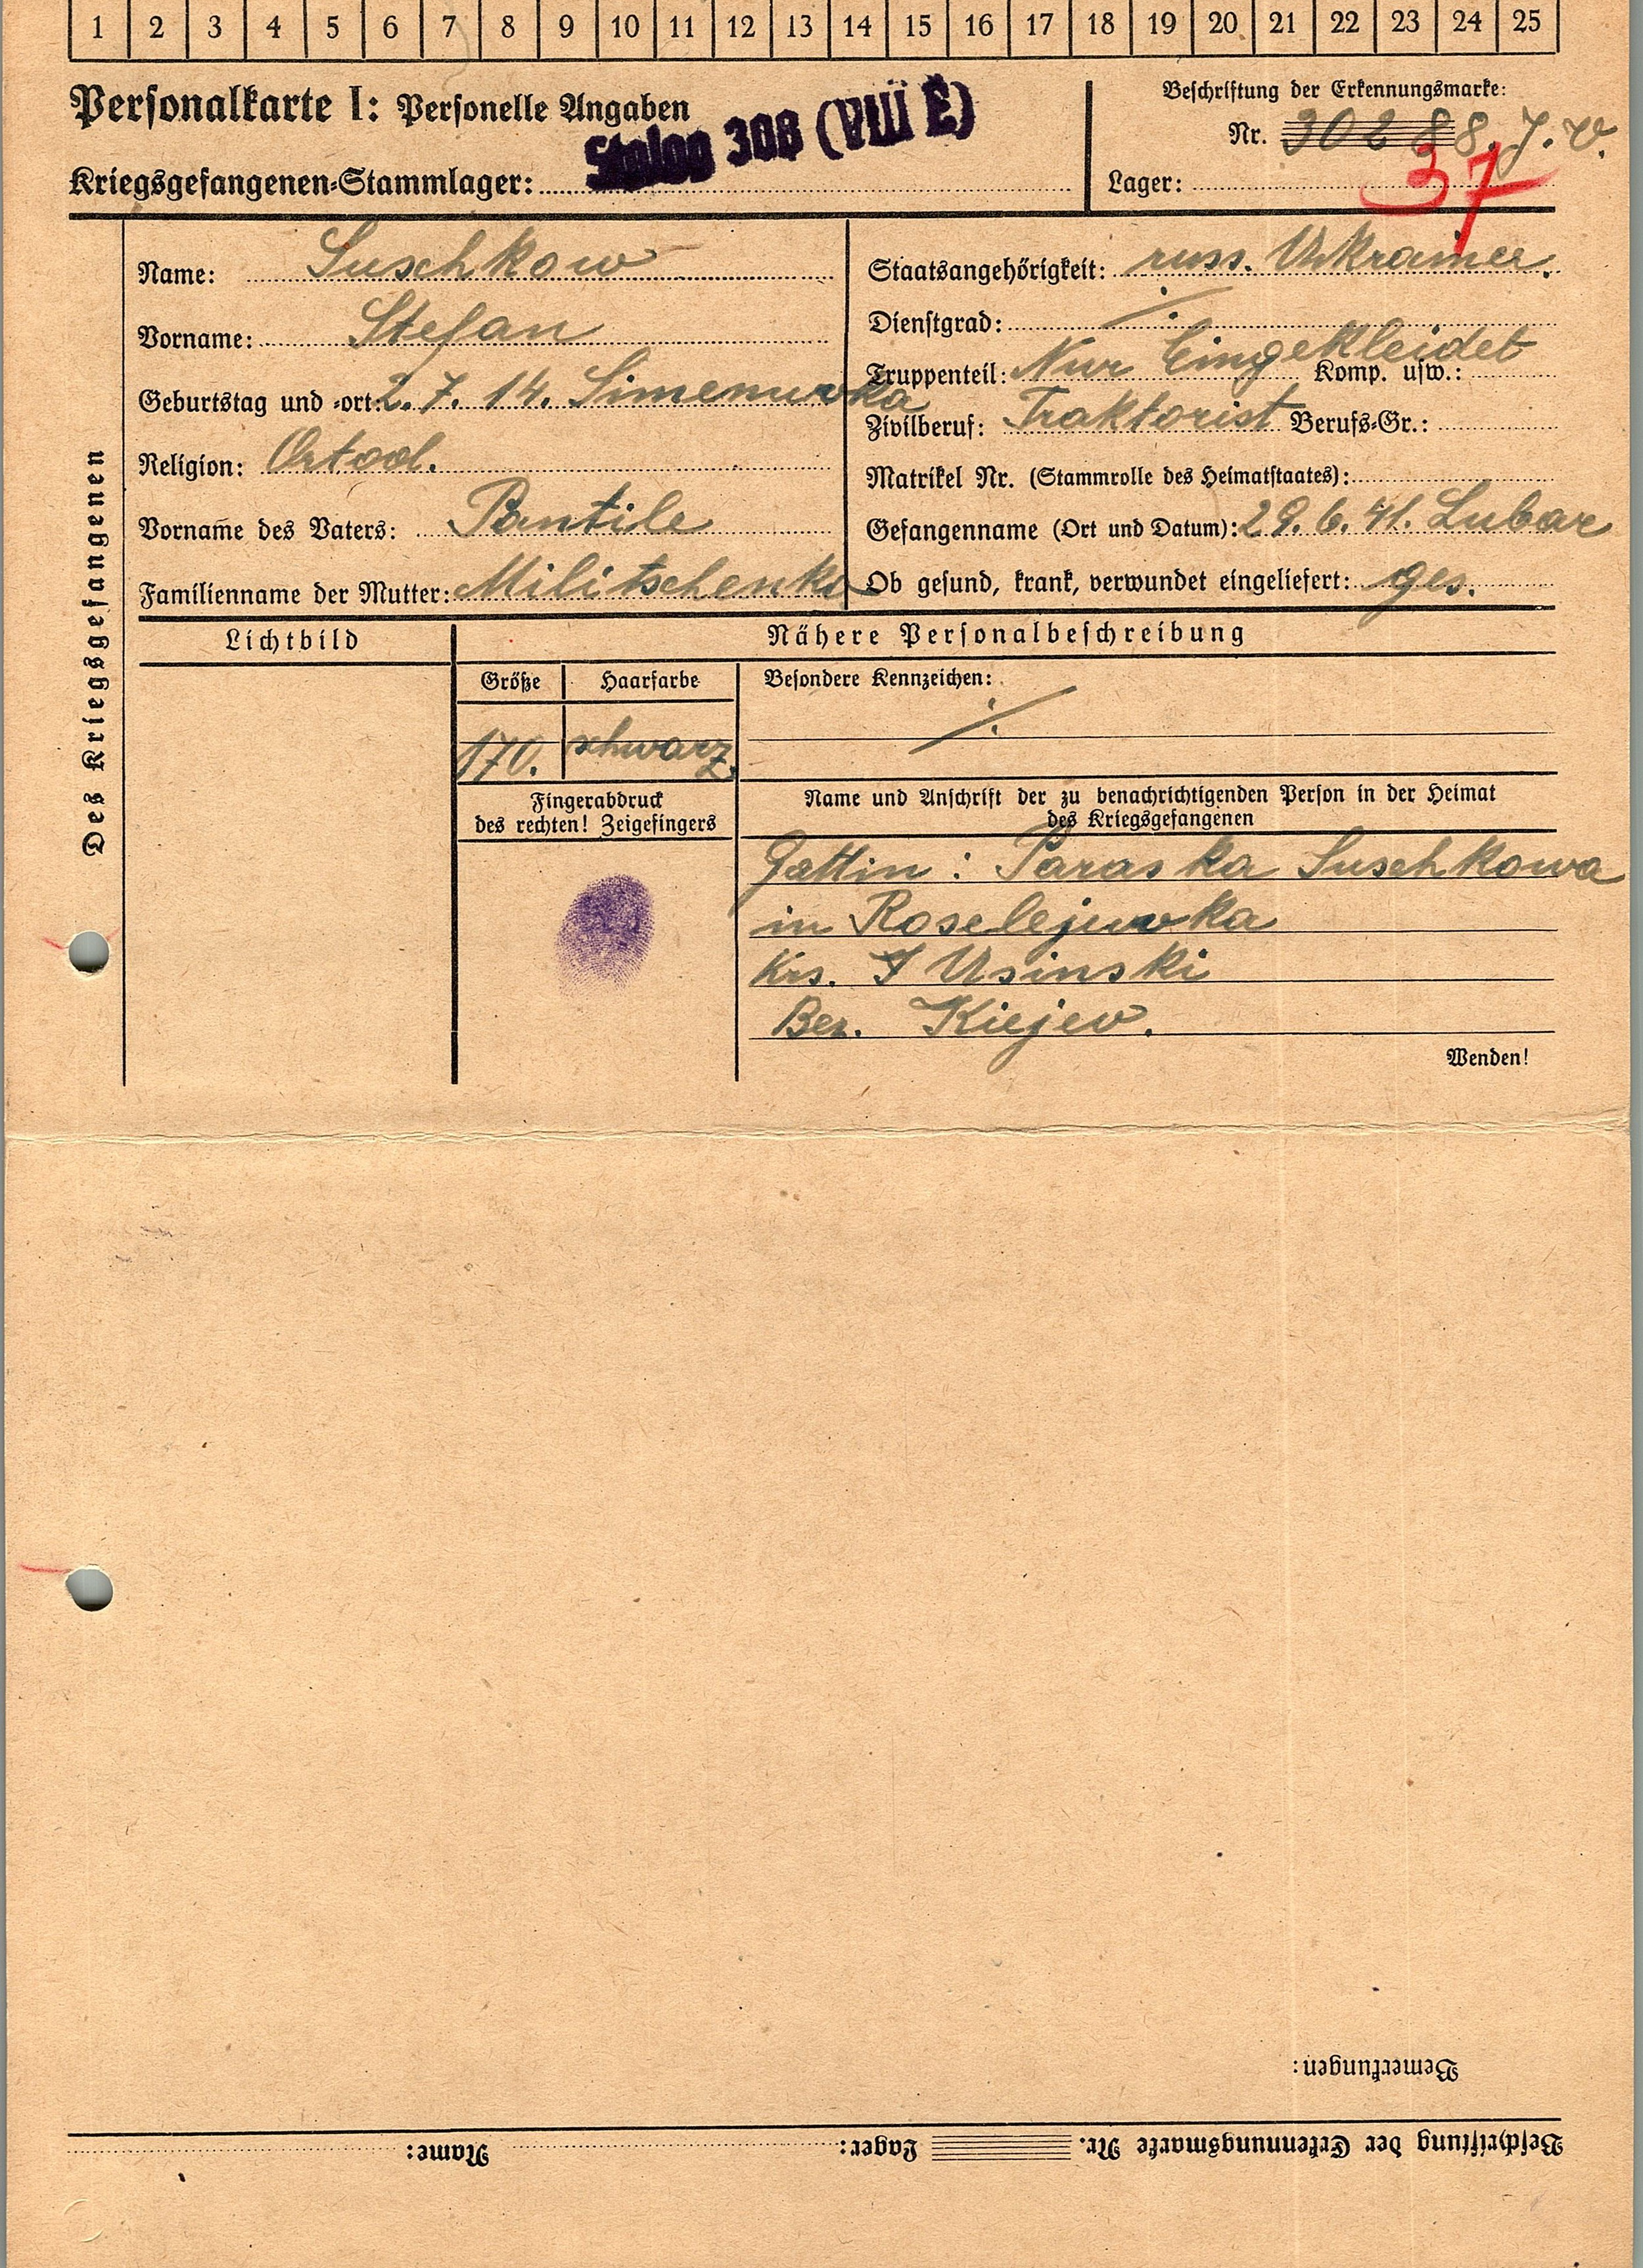 1 2 3 4 5 6 7 8 9 10 11 12 13 14 15 16 17 18 19 20 21 22 23 24 25
Personalkarte I: Personelle Angaben
Stalag 308 (VIII E)
Kriegsgefangenen-Stammlager:
Beschriftung der Erkennungsmarke:
Nr. 30288. J.V.
Lager:
37
Des Kriegsgefangenen
Name: Suschkow
Vorname: Stefan
Geburtstag und -ort: 2. 7. 14. Simenuvka
Religion: Ortod.
Vorname des Vaters: Pantile
Familienname der Mutter: Militschenko
Staatsangehörigkeit: russ. Ukrainer.
Dienstgrad: ./.
Truppenteil: Nur Eingekleidet Komp. usw.:
Zivilberuf: Traktorist Berufs-Gr.:
Matrikel Nr. (Stammrolle des Heimatstaates):
Gefangenname (Ort und Datum): 29. 6. 41. Lubar
Ob gesund, krank, verwundet eingeliefert: ges.
Lichtbild
Nähere Personalbeschreibung
Größe
Haarfarbe
Besondere Kennzeichen:
170.
schwarz.
./.
Fingerabdruck
des rechten! Zeigefingers
Name und Anschrift der zu benachrichtigenden Person in der Heimat
des Kriegsgefangenen
Gattin: Paraska Suschkowa
in Roselejuvka
Krs. J Usinski
Bez. Kiejev.
Wenden!
Bemerkungen:
Beschriftung der Erkennungsmarke Nr. Lager: Name: